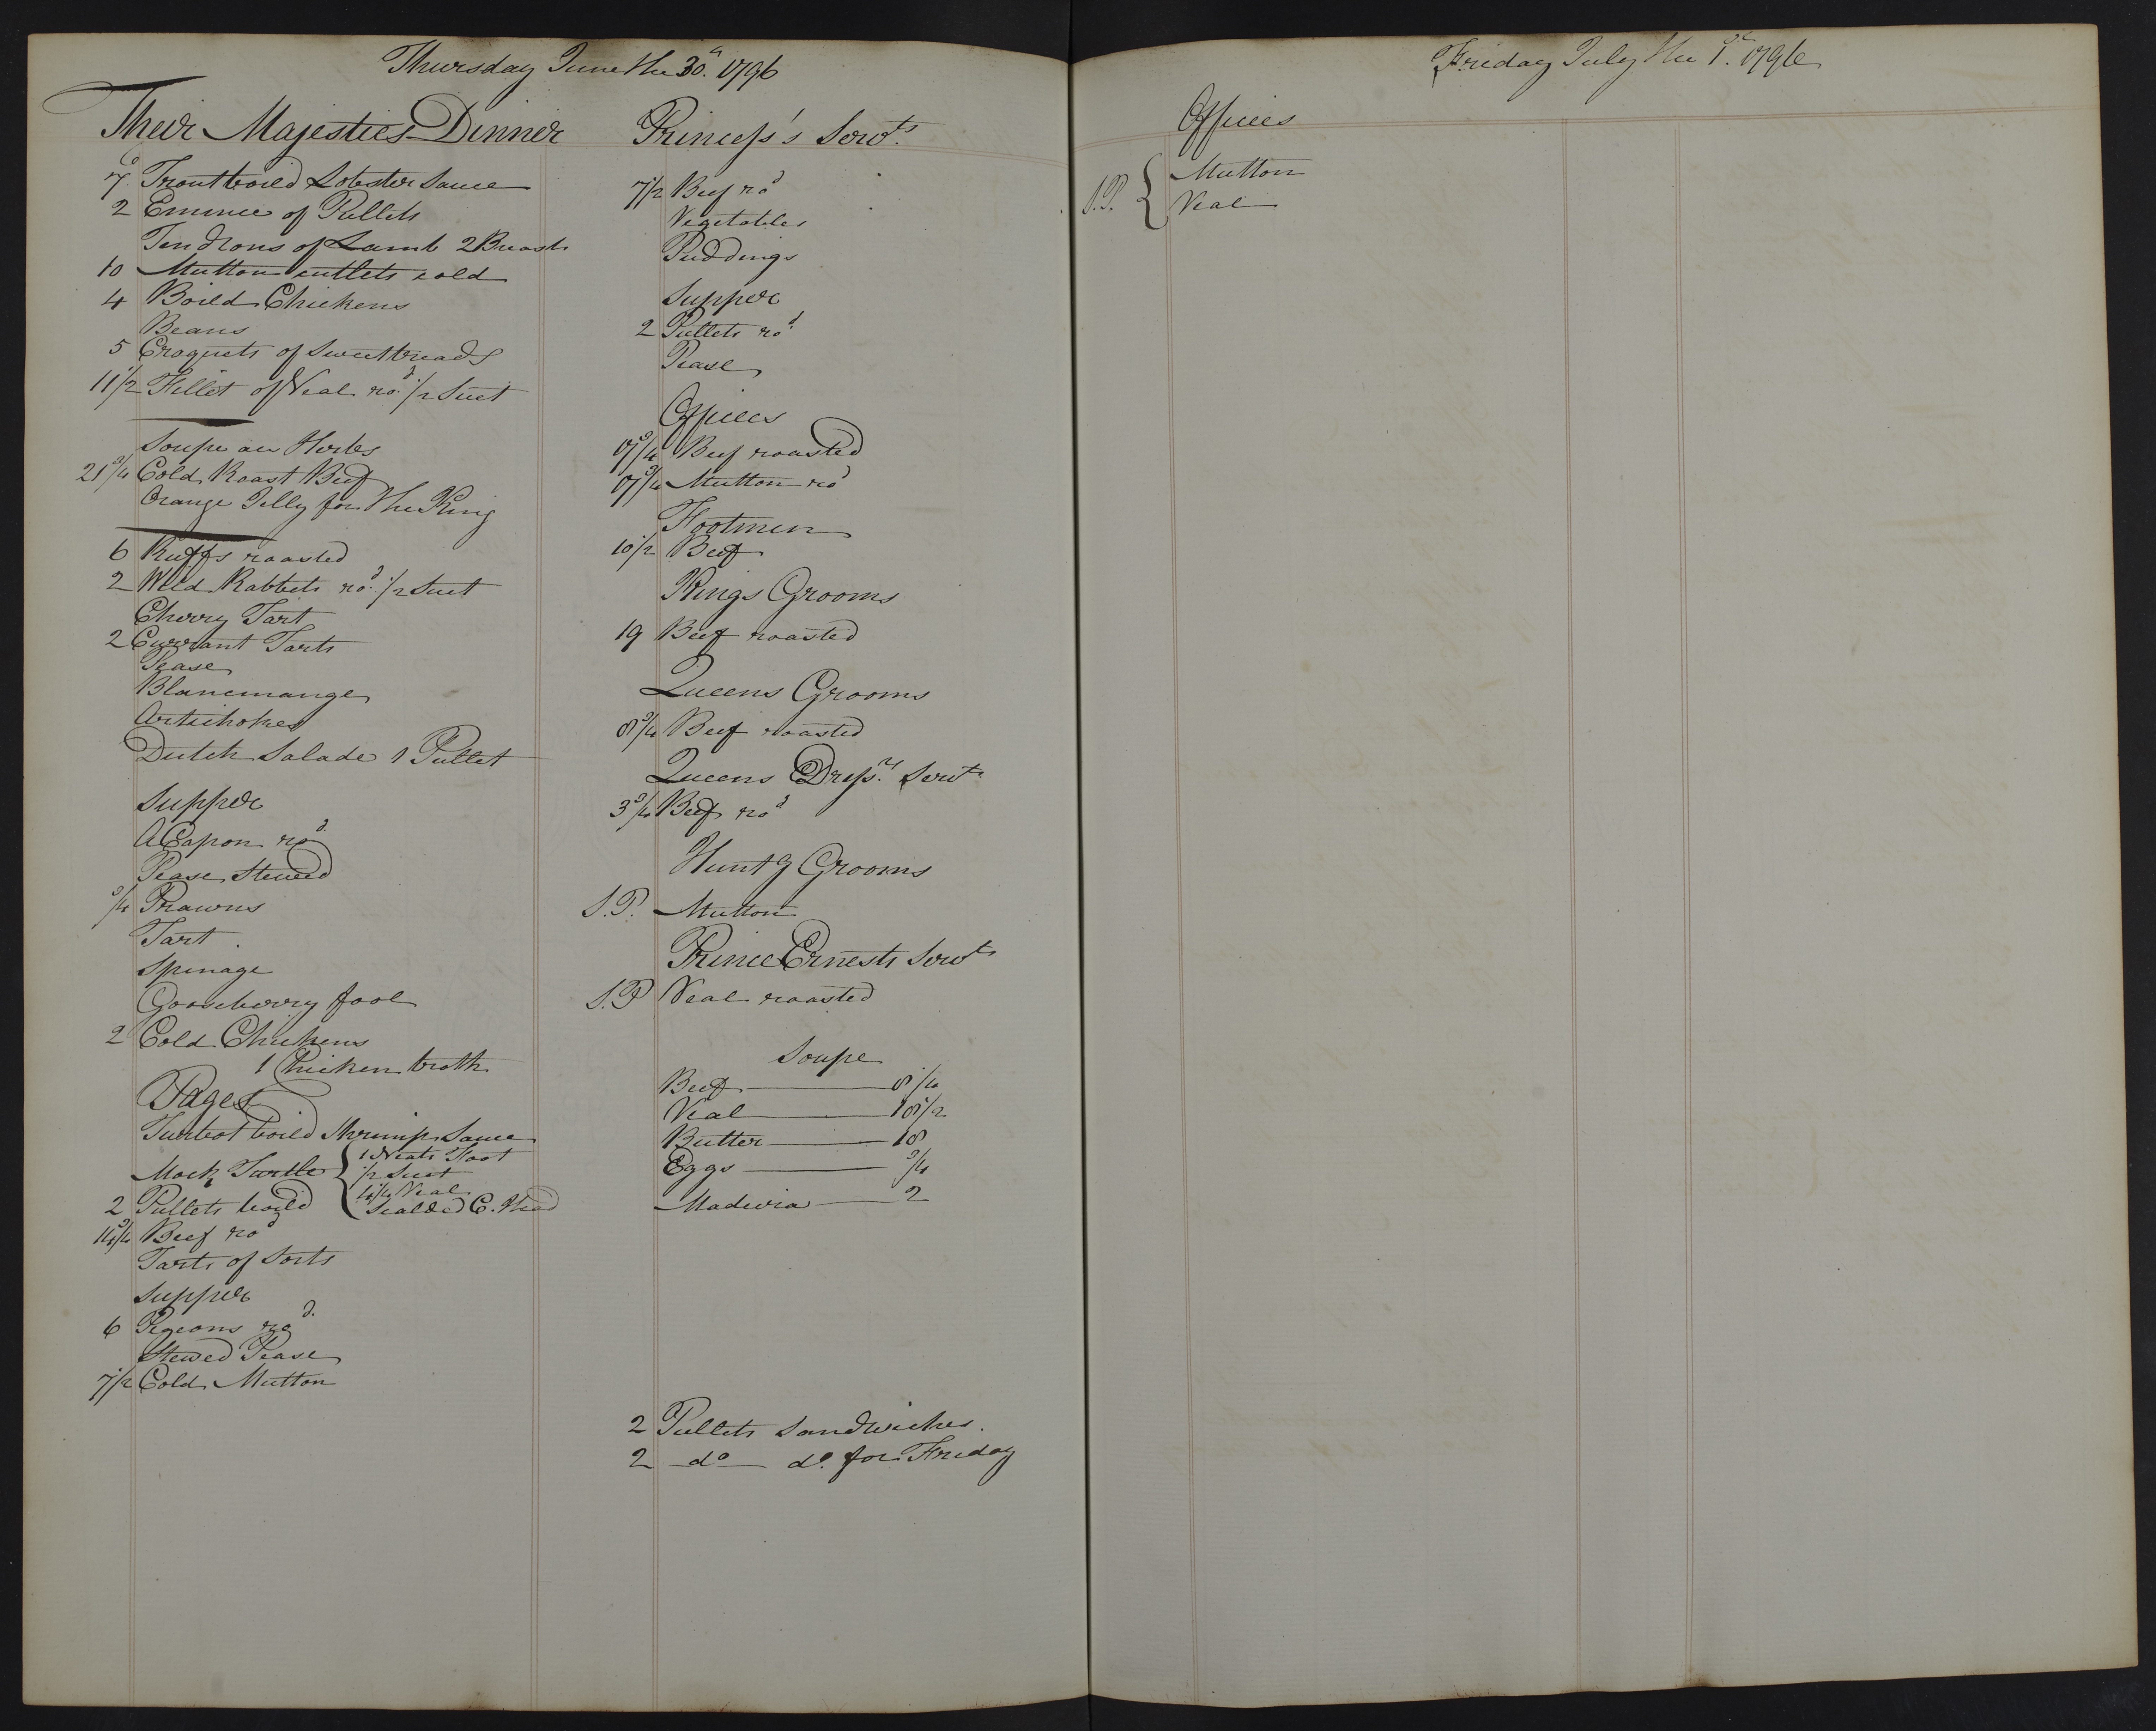 Thursday June the 30.th 1796
Their Majesties Dinner
7 Trout boild Lobster Sauce
2 Emince of Pullets
Tendrons of Lamb 2 Breasts
10 Mutton cutlets cold
4 Boild Chickens
Beans
5 Croquets of Sweetbreads
11 1/2 Fillet of Veal ro.d 1/2 Suet
Soupe au Herbs
21 3/4 Cold Roast Beef
Orange Jelly for The King
6 Ruffs roasted
2 Wild Rabbets ro.d 1/2 Suet
Cherry Tart
2 Currant Tarts
Pease
Blancmange
Artichokes
Dutch Salade 1 Pullet
Supper
A Capon ro.d
Pease Stewed
3/4 Prawns
Tart
Spinage
Gooseberry fool
2 Cold Chickens
1 Chicken broth
Pages
Turbot boild Shrimp Sauce
Mock Turtle { 1 Neats Foot
1/2 Suet
Veal
Scalded C. Head
2 Pullets boild
14 3/4 Beef ro.d
Tarts of Sorts
Supper
6 Pigeons ro.d
Stewed Pease
7 1/2 Cold Mutton
Princess's Serv.ts
7 1/2 Beef ro.d
Vegetables
Puddings
Supper
2 Pullets ro.d
Pease
Offices
Beef roasted
Mutton ro.d
Footmen
10 1/2 Beef
Kings Grooms
19 Beef roasted
Queens Grooms
8 3/4 Beef roasted
Queens Dress.rs Serv.ts
3 3/4 Beef ro.d
Hunt.g Grooms
S.P. Mutton
Prince Ernests Serv.ts
S.P Veal roasted
Soupe
Beef — 8 1/4
Veal — 18 1/2
Butter — 18
Eggs — 3/4
Madeira — 2
2 Pullets Sandwiches.
2 do do. for Friday
Friday July the 1.st 1796
Offices
S.P. { Mutton
Veal